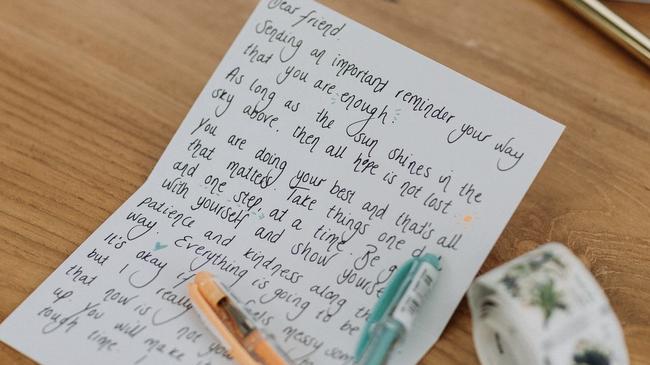 Dear friend.
Sending an important reminder your way
that you are enough!
As long as the sun shines in the
sky above, then all hope is not lost
You are doing your best and that's all
that matters. Take things one
and one step at a time. Be
with yourself and show
patience and kindness along
way. Everything is going to be
It's okay
but I really messy
that now is not
up. You will make
tough time.